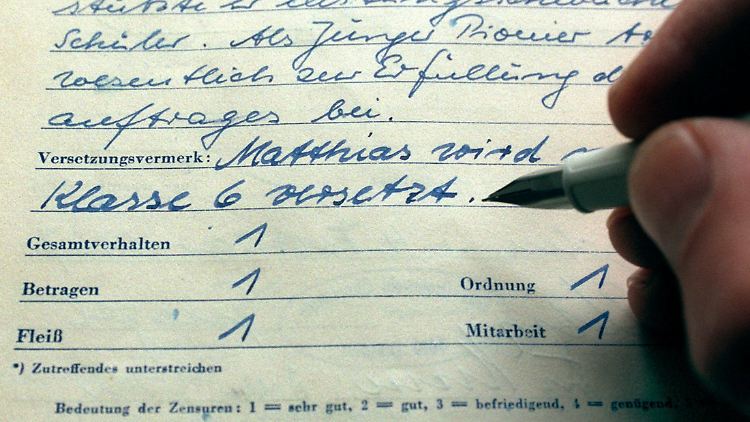 Schüler. Als Junger Pionier
wesentlich zur Erfüllung d
auftrages bei.
Versetzungsvermerk: Matthias wird
Klasse 6 versetzt.
Gesamtverhalten 1
Betragen 1 Ordnung 1
Fleiß 1 Mitarbeit 1
*) Zutreffendes unterstreichen
Bedeutung der Zensuren: 1 = sehr gut, 2 = gut, 3 = befriedigend, 4 = genügend,